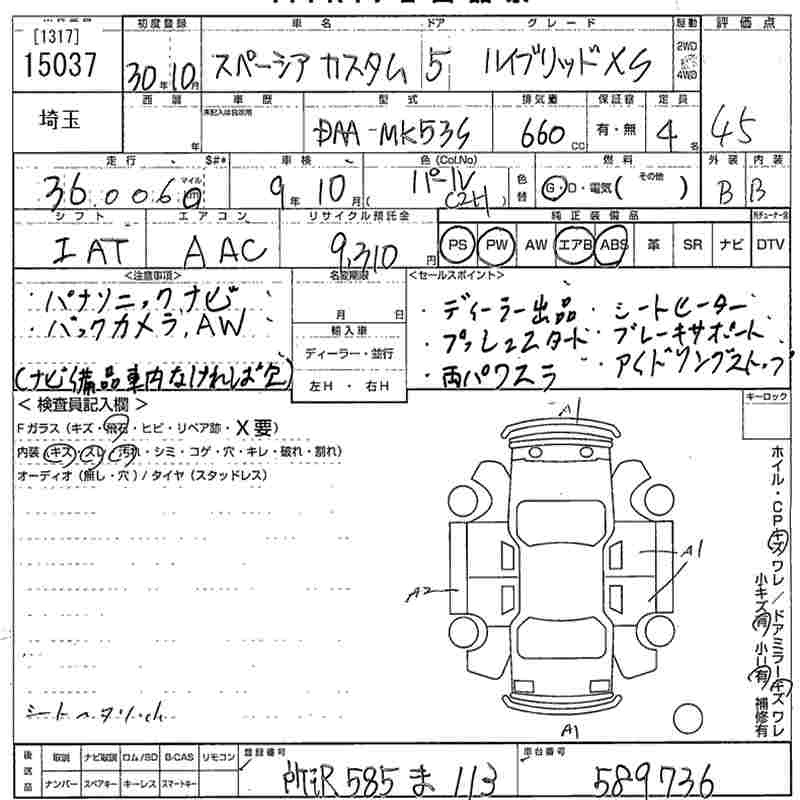 [1317]
15037
初度登録 車名 ドア グレード 駆動 評価点
30年10月 スペーシア カスタム 5 ハイブリッドXS 2WD 4WD
埼玉 西暦 車歴 型式 排気量 保証書 定員
年 未記入は自家用 DAA-MK53S 660 CC 有・無 4名 45
走行 S#* 車検 色(Col.No) 燃料 外装 内装
36,0060 マイル km 9年10月 パール 色替 G・D・電気( その他 ) B B
シフト エアコン リサイクル預託金 純正装備品
IAT AAC 9,310円 PS PW AW エアB ABS 革 SR ナビ DTV
<注意事項> 名変期限 <セールスポイント>
・パナソニックナビ
・バックカメラ,AW
(ナビ備品車内なければ欠)
月 日
輸入車
ディーラー・並行
左H ・ 右H
・ディーラー出品 ・シートヒーター
・プッシュスタート ・ブレーキサポート
・両パワスラ ・アイドリングストップ
<検査員記入欄> キーロック
Fガラス(キズ・飛石・ヒビ・リペア跡・X要)
内装(キズ・スレ・汚れ・シミ・コゲ・穴・キレ・破れ・割れ)
オーディオ(無し・穴)/タイヤ(スタッドレス)
A1
A1
A2
A1
ホイル・CPキズワレ/ドアミラーキズワレ
小キズ有 小U有 補修有
後送品 取説 ナビ取説 ロム/SD B-CAS リモコン 登録番号 車台番号
ナンバー スペアキー キーレス スマートキー 所沢 585 ま 113 589736